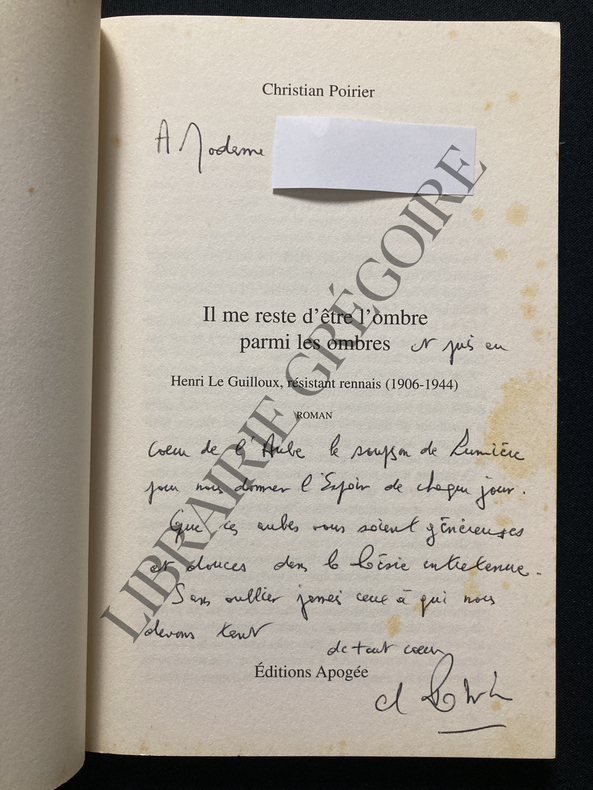 Christian Poirier
A Madame
Il me reste d'être l'ombre
parmi les ombres et puis au
Henri Le Guilloux, résistant rennais (1906-1944)
ROMAN
coeur de l'Aube le soupçon de Lumière
pour nous donner l'Espoir de chaque jour.
Que ces aubes vous soient généreuses
et douces dans la entretenue.
Sans oublier jamais ceux à qui nous
devons tant
de tout coeur
Éditions Apogée
LIBRAIRIE GRÉGOIRE